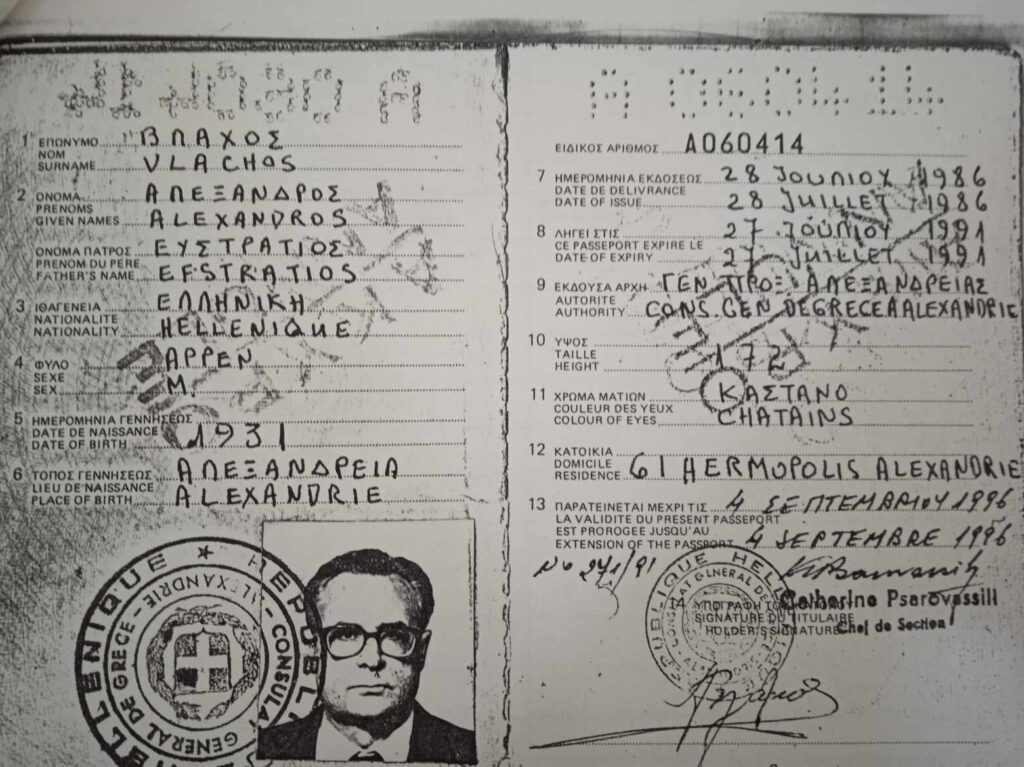 1 ΕΠΩΝΥΜΟ ΒΛΑΧΟΣ
NOM
SURNAME VLACHOS
2 ΟΝΟΜΑ ΑΛΕΞΑΝΔΡΟΣ
PRENOMS
GIVEN NAMES ALEXANDROS
ΟΝΟΜΑ ΠΑΤΡΟΣ ΕΥΣΤΡΑΤΙΟΣ
PRENOM DU PÈRE
FATHER'S NAME EFSTRATIOS
3 ΙΘΑΓΕΝΕΙΑ ΕΛΛΗΝΙΚΗ
NATIONALITE
NATIONALITY HELLENIQUE
4 ΦΥΛΟ ΑΡΡΕΝ
SEXE
SEX M.
5 ΗΜΕΡΟΜΗΝΙΑ ΓΕΝΝΗΣΕΩΣ
DATE DE NAISSANCE
DATE OF BIRTH 1931
6 ΤΟΠΟΣ ΓΕΝΝΗΣΕΩΣ ΑΛΕΞΑΝΔΡΕΙΑ
LIEU DE NAISSANCE
PLACE OF BIRTH ALEXANDRIE
REPUBLIQUE HELLENIQUE
CONSULAT GENERAL DE GRECE - ALEXANDRIE
A 060414
ΕΙΔΙΚΟΣ ΑΡΙΘΜΟΣ A060414
7 ΗΜΕΡΟΜΗΝΙΑ ΕΚΔΟΣΕΩΣ 28 ΙΟΥΛΙΟΥ 1986
DATE DE DELIVRANCE
DATE OF ISSUE 28 JUILLET 1986
8 ΛΗΓΕΙ ΣΤΙΣ 27 ΙΟΥΛΙΟΥ 1991
CE PASSEPORT EXPIRE LE
DATE OF EXPIRY 27 JUILLET 1991
9 ΕΚΔΟΥΣΑ ΑΡΧΗ ΓΕΝ. ΠΡΟΞ. ΑΛΕΞΑΝΔΡΕΙΑΣ
AUTORITE
AUTHORITY CONS. GEN. DE GRECE A ALEXANDRIE
10 ΥΨΟΣ
TAILLE 172
HEIGHT
11 ΧΡΩΜΑ ΜΑΤΙΩΝ ΚΑΣΤΑΝΟ
COULEUR DES YEUX
COLOUR OF EYES CHATAINS
12 ΚΑΤΟΙΚΙΑ
DOMICILE
RESIDENCE 61 HERMOPOLIS ALEXANDRIE
13 ΠΑΡΑΤΕΙΝΕΤΑΙ ΜΕΧΡΙ ΤΙΣ 4 ΣΕΠΤΕΜΒΡΙΟΥ 1996
LA VALIDITE DU PRESENT PASSEPORT
EST PROROGEE JUSQU'AU
EXTENSION OF THE PASSPORT 4 SEPTEMBRE 1996
No 271/91
Catherine Psarovassili
Chef de Section
14 ΥΠΟΓΡΑΦΗ
SIGNATURE DU TITULAIRE
HOLDER'S SIGNATURE
REPUBLIQUE HELLENIQUE
CONSULAT GENERAL DE